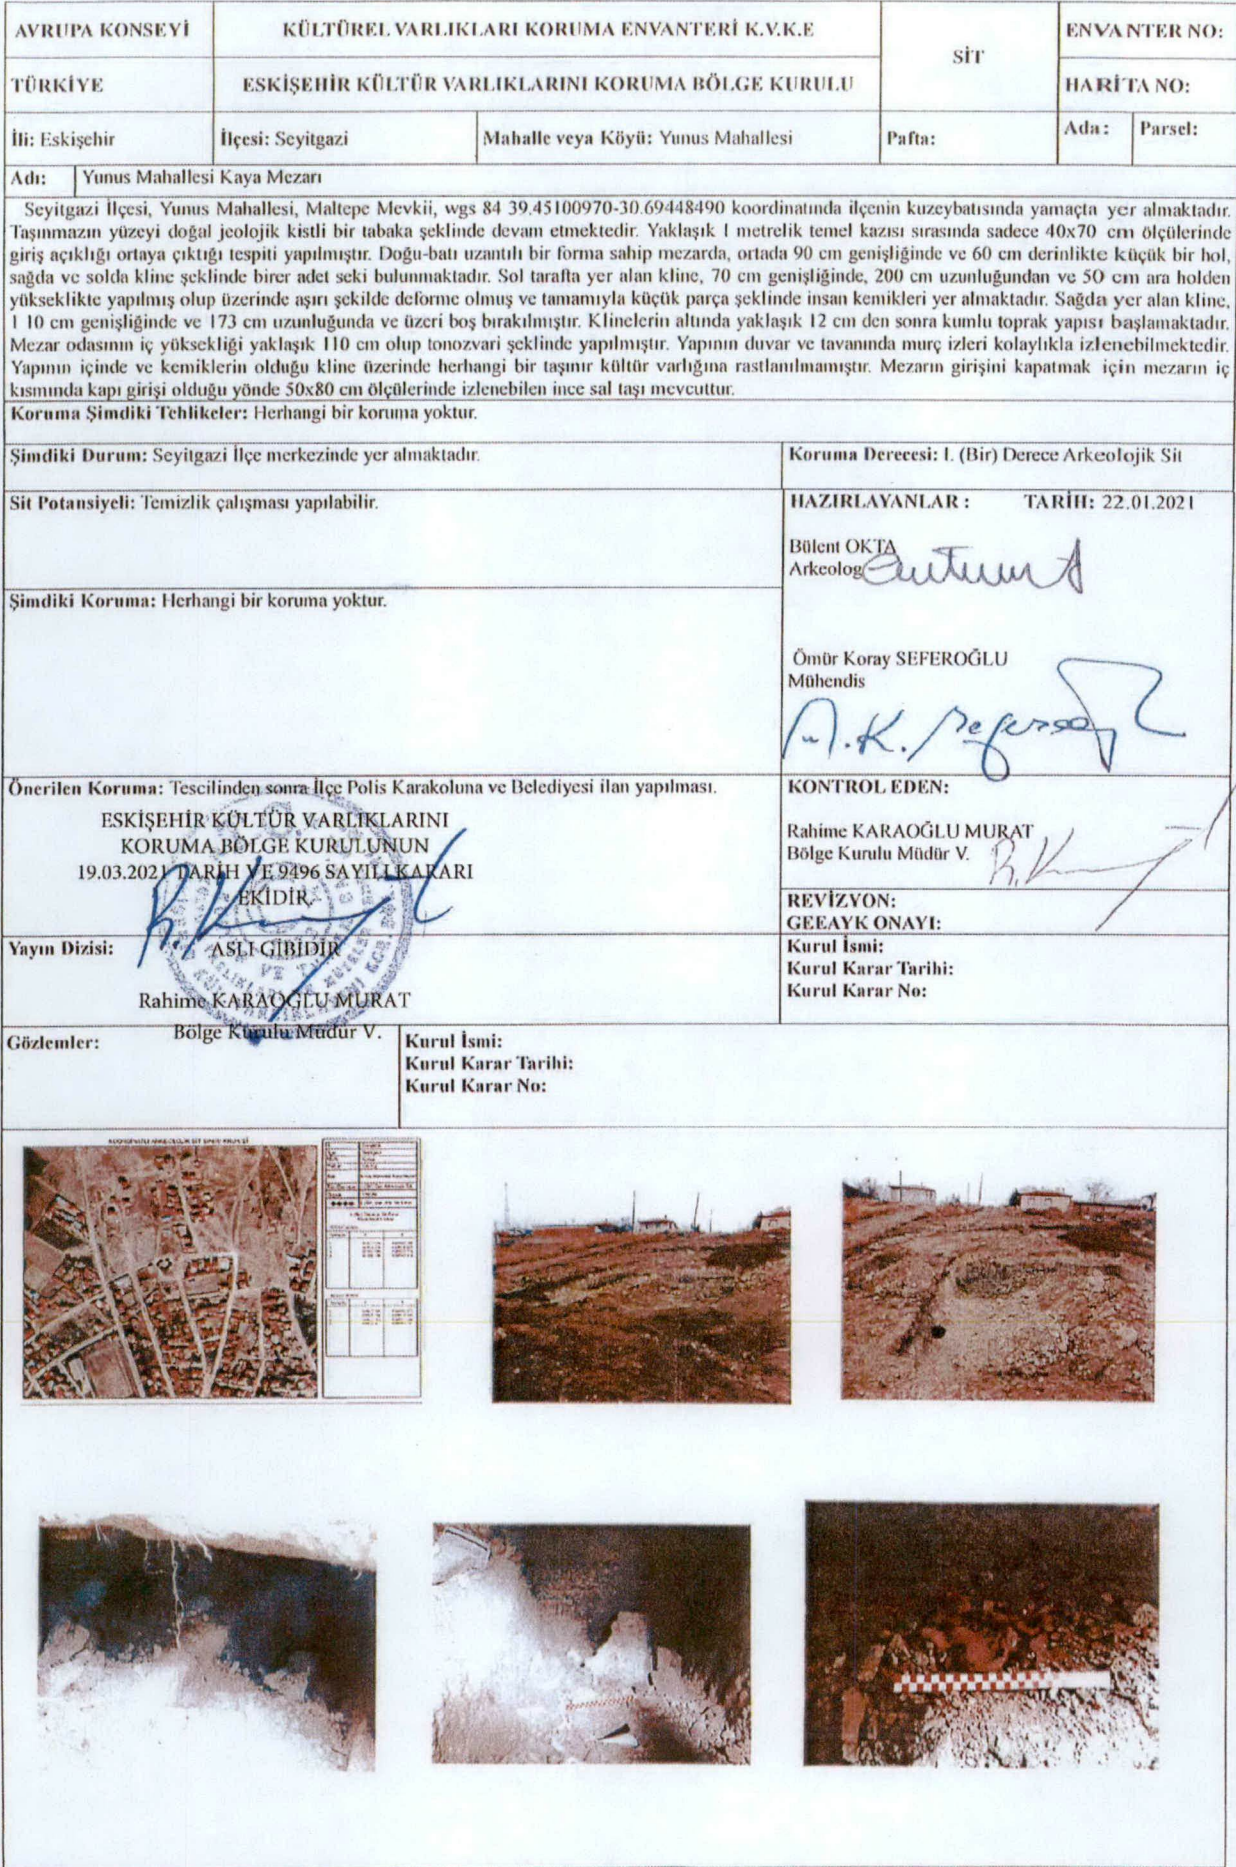 AVRUPA KONSEYİ
KÜLTÜREL VARLIKLARI KORUMA ENVANTERİ K.V.K.E
SİT
ENVANTER NO:
TÜRKİYE
ESKİŞEHİR KÜLTÜR VARLIKLARINI KORUMA BÖLGE KURULU
HARİTA NO:
İli: Eskişehir
İlçesi: Seyitgazi
Mahalle veya Köyü: Yunus Mahallesi
Pafta:
Ada:
Parsel:
Adı: Yunus Mahallesi Kaya Mezarı
Seyitgazi İlçesi, Yunus Mahallesi, Maltepe Mevkii, wgs 84 39.45100970-30.69448490 koordinatında ilçenin kuzeybatısında yamaçta yer almaktadır.
Taşınmazın yüzeyi doğal jeolojik kistli bir tabaka şeklinde devam etmektedir. Yaklaşık 1 metrelik temel kazısı sırasında sadece 40x70 cm ölçülerinde
giriş açıklığı ortaya çıktığı tespiti yapılmıştır. Doğu-batı uzantılı bir forma sahip mezarda, ortada 90 cm genişliğinde ve 60 cm derinlikte küçük bir hol,
sağda ve solda kline şeklinde birer adet seki bulunmaktadır. Sol tarafta yer alan kline, 70 cm genişliğinde, 200 cm uzunluğundan ve 50 cm ara holden
yükseklikte yapılmış olup üzerinde aşırı şekilde deforme olmuş ve tamamıyla küçük parça şeklinde insan kemikleri yer almaktadır. Sağda yer alan kline,
1 10 cm genişliğinde ve 173 cm uzunluğunda ve üzeri boş bırakılmıştır. Klinelerin altında yaklaşık 12 cm den sonra kumlu toprak yapısı başlamaktadır.
Mezar odasının iç yüksekliği yaklaşık 110 cm olup tonozvari şeklinde yapılmıştır. Yapının duvar ve tavanında murç izleri kolaylıkla izlenebilmektedir.
Yapının içinde ve kemiklerin olduğu kline üzerinde herhangi bir taşınır kültür varlığına rastlanılmamıştır. Mezarın girişini kapatmak için mezarın iç
kısmında kapı girişi olduğu yönde 50x80 cm ölçülerinde izlenebilen ince sal taşı mevcuttur.
Koruma Şimdiki Tehlikeler: Herhangi bir koruma yoktur.
Şimdiki Durum: Seyitgazi İlçe merkezinde yer almaktadır.
Koruma Derecesi: I. (Bir) Derece Arkeolojik Sit
Sit Potansiyeli: Temizlik çalışması yapılabilir.
HAZIRLAYANLAR : TARİH: 22.01.2021
Bülent OKTA
Arkeolog
Şimdiki Koruma: Herhangi bir koruma yoktur.
Ömür Koray SEFEROĞLU
Mühendis
Önerilen Koruma: Tescilinden sonra İlçe Polis Karakoluna ve Belediyesi ilan yapılması.
ESKİŞEHİR KÜLTÜR VARLIKLARINI
KORUMA BÖLGE KURULUNUN
19.03.2021 TARİH VE 9496 SAYILI KARARI
EKİDİR.
KONTROL EDEN:
Rahime KARAOĞLU MURAT
Bölge Kurulu Müdür V.
REVİZYON:
GEEAYK ONAYI:
Yayın Dizisi:
ASLI GİBİDİR
Rahime KARAOĞLU MURAT
Bölge Kurulu Müdür V.
Kurul İsmi:
Kurul Karar Tarihi:
Kurul Karar No:
Gözlemler:
Kurul İsmi:
Kurul Karar Tarihi:
Kurul Karar No: